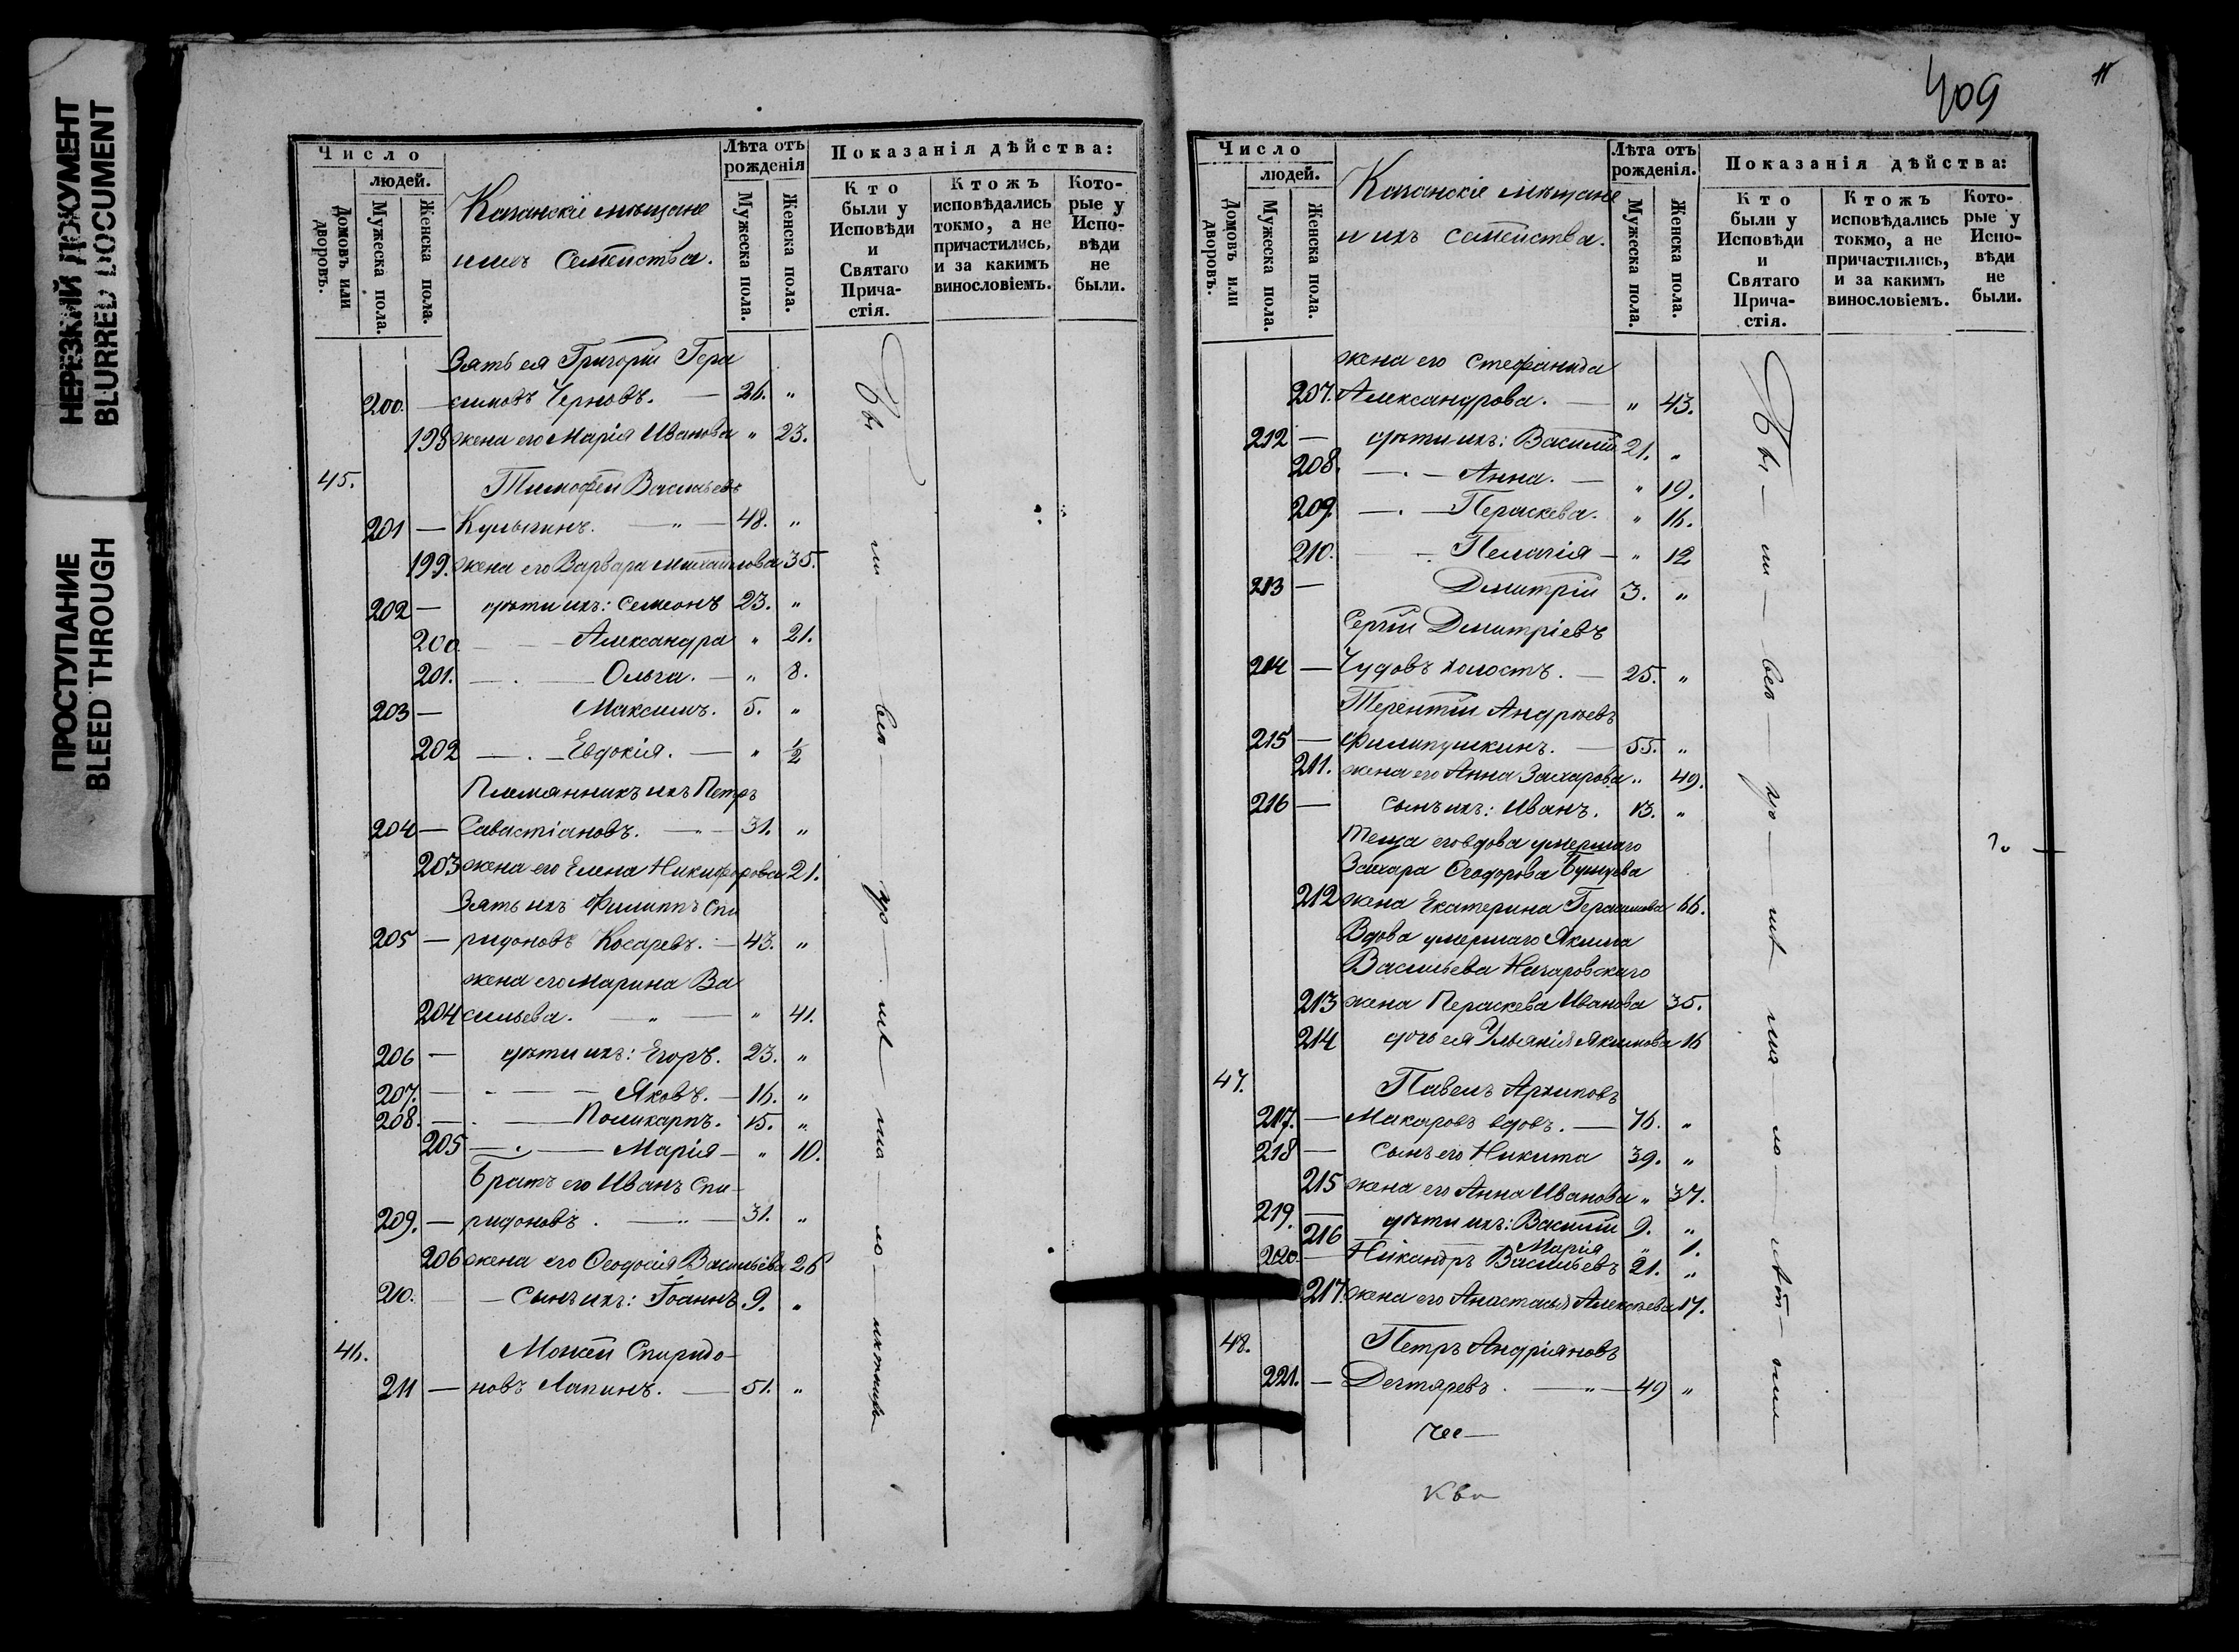 НЕРЕЗКИЙ ДОКУМЕНТ
BLURRED DOCUMENT
ПРОСТУПАНИЕ
BLEED THROUGH
Число
людей.
Домовъ или дворовъ.
Мужеска пола.
Женска пола.
Казанскіе мѣщане
и ихъ Семейства.
Лѣта отъ рожденія
Мужеска пола.
Женска пола.
Показанія дѣйства:
Кто были у Исповѣди и Святаго Прича-стія.
Ктожъ исповѣдались токмо, а не причастились, и за какимъ винословіемъ.
Кото-рые у Испо-вѣди не были.
Зять ея Григорій Гера
200. — симовъ Черновъ. — 26. "
198 жена его Марія Иванова " 23.
45. Тимофей Васильевъ
201 — Кулыгинъ. — " — 48. "
199. жена его Варвара Михайлова 35.
202 — дѣти ихъ: Семеонъ 23. "
200 — Александра " 21.
201. — Ольга. — " 8.
203 — Максимъ. 5. "
202 — Евдокія. — " 1/2
Племянникъ ихъ Петръ
204 — Савастіановъ. — " — 31. "
203 жена его Елена Никифорова 21.
Зять ихъ Филиппъ Спи
205 — ридоновъ Косаревъ. — 43. "
жена его Марина Ва
204 сильева. — " — " 41.
206 — дѣти ихъ: Егоръ. 23. "
207. — Яковъ. — 16. "
208. — Поликарпъ. 15. "
205 — Марія — " 10.
Братъ его Иванъ Спи-
209. — ридоновъ. — " — 31. "
206 жена его Ѳеодосія Васильева 26
210. — Сынъ ихъ: Іоаннъ 9. "
46. Моисей Спиридо-
211 — новъ Лапинъ. — 51. "
409
Число
людей.
Домовъ или дворовъ.
Мужеска пола.
Женска пола.
Казанскіе мѣщане
и ихъ семейства.
Лѣта отъ рожденія.
Мужеска пола.
Женска пола.
Показанія дѣйства:
Кто были у Исповѣди и Святаго Прича-стія.
Ктожъ исповѣдались токмо, а не причастились, и за какимъ винословіемъ.
Кото-рые у Испо-вѣди не были.
жена его Стефанида
207. Александрова. — " 43.
212 — дѣти ихъ: Василій 21. "
208. — Анна. — " 19.
209. — Пераскева. " 16.
210. Пелагія — " 12
213 — Димитрій 3. "
Сергій Димитріевъ
214 — Чудовъ холостъ. — 25. "
Терентій Андреевъ
215 — Филипушкинъ. — 55. "
211. жена его Анна Захарова " 49.
216 — Сынъ ихъ: Иванъ. 13. "
Теща его вдова умершаго
Захара Ѳеодорова
212 жена Екатерина Герасимова 66.
Вдова умершаго Якима
Васильева
213 жена Пераскева Иванова 35.
214 дочь ея Ульянія Якимова 16
47. Павелъ Архиповъ
217. — Макаровъ вдовъ. — 76. "
218 — Сынъ его Никита 39. "
215 жена его Анна Иванова " 37.
219. — дѣти ихъ: Василій 9. "
216 Марія " 1.
220 — Никандръ Васильевъ 21. "
217. жена его Анастасія Алексѣева 17.
48. Петръ Андріяновъ
221. — Дегтяревъ. — " — 49 "